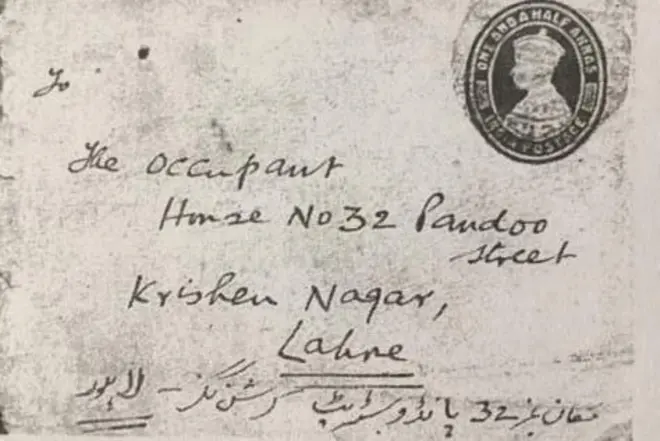 ONE AND A HALF ANNAS
INDIA POSTAGE
To
The Occupant
House No 32 Pandoo
street
Krishen Nagar,
Lahore
مکان نمبر 32 پانڈو سٹریٹ کرشن نگر - لاہور